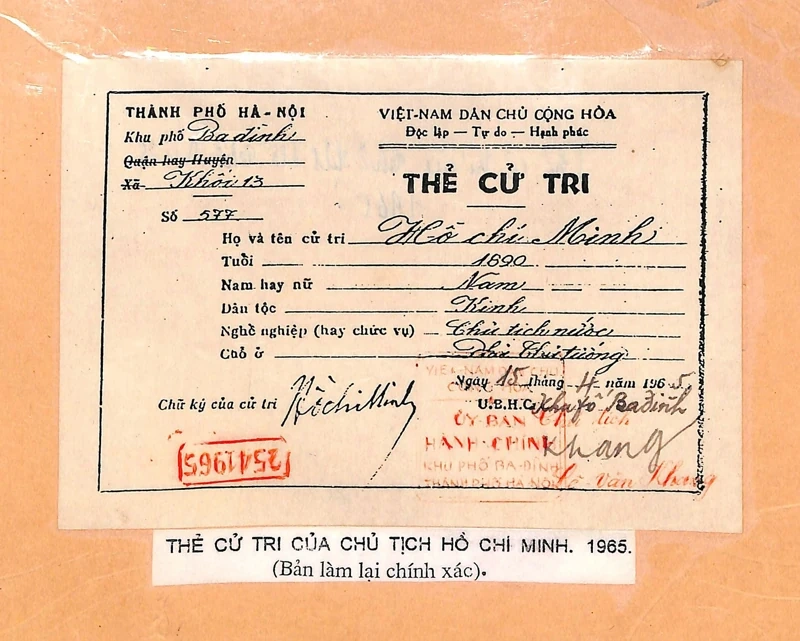 THÀNH PHỐ HÀ-NỘI
Khu phố Ba đình
Quận hay Huyện
Xã Khối 13
Số 577
VIỆT-NAM DÂN CHỦ CỘNG HÒA
Độc lập — Tự do — Hạnh phúc
THẺ CỬ TRI
Họ và tên cử tri Hồ chí Minh
Tuổi 1890
Nam hay nữ Nam
Dân tộc Kinh
Nghề nghiệp (hay chức vụ) Chủ tịch nước
Chỗ ở Phủ Thủ tướng
Ngày 15 tháng 4 năm 1965
Chữ ký của cử tri HồchíMinh
U.B.H.C Khu fố Ba đình
VIỆT-NAM DÂN CHỦ
CỘNG HÒA
ỦY-BAN Chủ tịch
HÀNH-CHÍNH Khang
KHU PHỐ BA-ĐÌNH
THÀNH PHỐ HÀ NỘI Văn Khang
2541965
THẺ CỬ TRI CỦA CHỦ TỊCH HỒ CHÍ MINH. 1965.
(Bản làm lại chính xác).